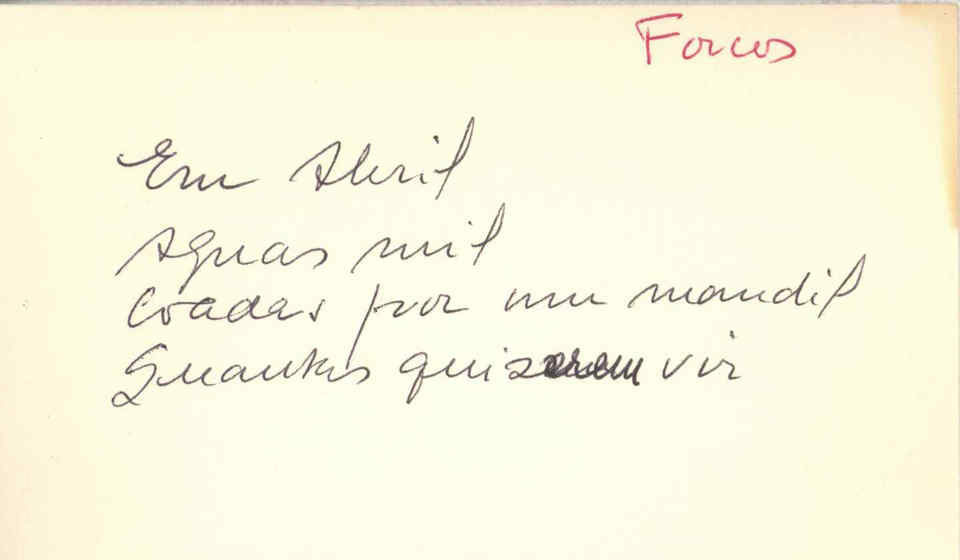 Forcos
Em Abril
Aguas mil
Coadas por um mandil
Quantas quiserem vir